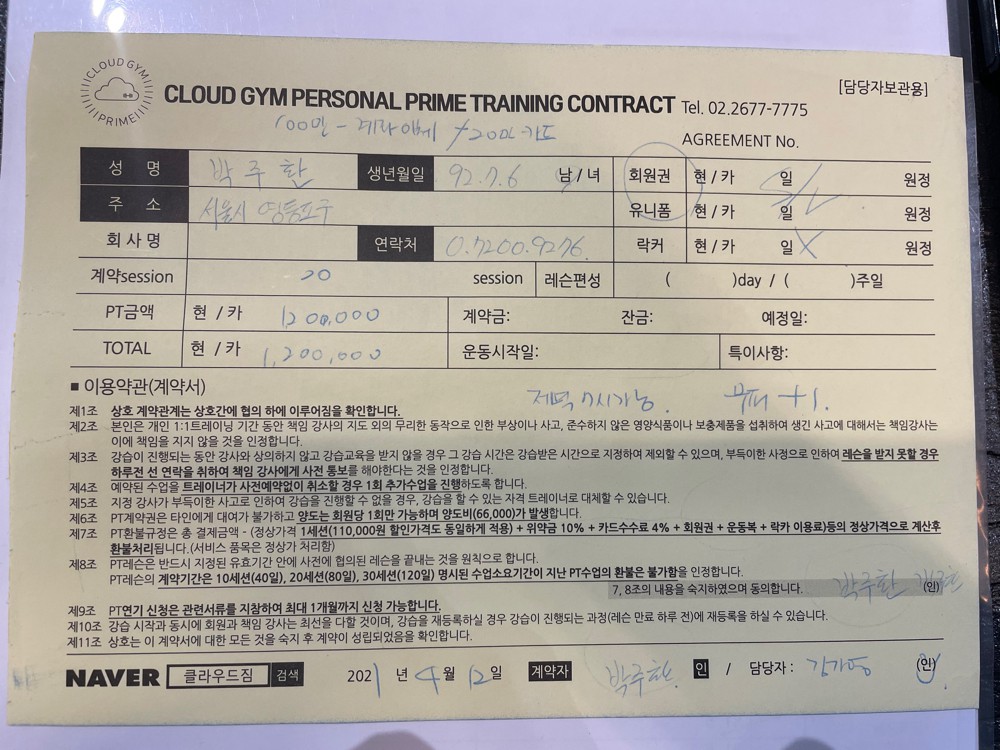 CLOUD GYM
PRIME
CLOUD GYM PERSONAL PRIME TRAINING CONTRACT Tel. 02.2677-7775
[담당자보관용]
100만 - 계좌이체 +20만 카드
AGREEMENT No.
성 명 박주환 생년월일 92.7.6 남 / 녀 회원권 현 / 카 일 원정
주 소 서울시 영등포구 유니폼 현 / 카 일 원정
회 사 명 연락처 0.7200.9276 락커 현 / 카 일 X 원정
계약session 20 session 레슨편성 ( )day / ( )주일
PT금액 현 / 카 1200,000 계약금: 잔금: 예정일:
TOTAL 현 / 카 1,200,000 운동시작일: 특이사항:
■ 이용약관(계약서)
저녁 7시가능. 무피 +1.
제1조 상호 계약관계는 상호간에 협의 하에 이루어짐을 확인합니다.
제2조 본인은 개인 1:1트레이닝 기간 동안 책임 강사의 지도 외의 무리한 동작으로 인한 부상이나 사고, 준수하지 않은 영양식품이나 보충제품을 섭취하여 생긴 사고에 대해서는 책임강사는
이에 책임을 지지 않을 것을 인정합니다.
제3조 강습이 진행되는 동안 강사와 상의하지 않고 강습교육을 받지 않을 경우 그 강습 시간은 강습받은 시간으로 지정하여 제외할 수 있으며, 부득이한 사정으로 인하여 레슨을 받지 못할 경우
하루전 선 연락을 취하여 책임 강사에게 사전 통보를 해야한다는 것을 인정합니다.
제4조 예약된 수업을 트레이너가 사전예약없이 취소할 경우 1회 추가수업을 진행하도록 합니다.
제5조 지정 강사가 부득이한 사고로 인하여 강습을 진행할 수 없을 경우, 강습을 할 수 있는 자격 트레이너로 대체할 수 있습니다.
제6조 PT계약권은 타인에게 대여가 불가하고 양도는 회원당 1회만 가능하며 양도비(66,000)가 발생합니다.
제7조 PT환불규정은 총 결제금액 - (정상가격 1세션(110,000원 할인가격도 동일하게 적용) + 위약금 10% + 카드수수료 4% + 회원권 + 운동복 + 락카 이용료)등의 정상가격으로 계산후
환불처리됩니다.(서비스 품목은 정상가 처리함)
제8조 PT레슨은 반드시 지정된 유효기간 안에 사전에 협의된 레슨을 끝내는 것을 원칙으로 합니다.
PT레슨의 계약기간은 10세션(40일), 20세션(80일), 30세션(120일) 명시된 수업소요기간이 지난 PT수업의 환불은 불가함을 인정합니다.
7, 8조의 내용을 숙지하였으며 동의합니다. 박주환 (인)
제9조 PT연기 신청은 관련서류를 지참하여 최대 1개월까지 신청 가능합니다.
제10조 강습 시작과 동시에 회원과 책임 강사는 최선을 다할 것이며, 강습을 재등록하실 경우 강습이 진행되는 과정(레슨 만료 하루 전)에 재등록을 하실 수 있습니다.
제11조 상호는 이 계약서에 대한 모든 것을 숙지 후 계약이 성립되었음을 확인합니다.
NAVER 클라우드짐 검색 2021 년 4 월 12 일 계약자 박주환 인 / 담당자 : 김가영 (인)